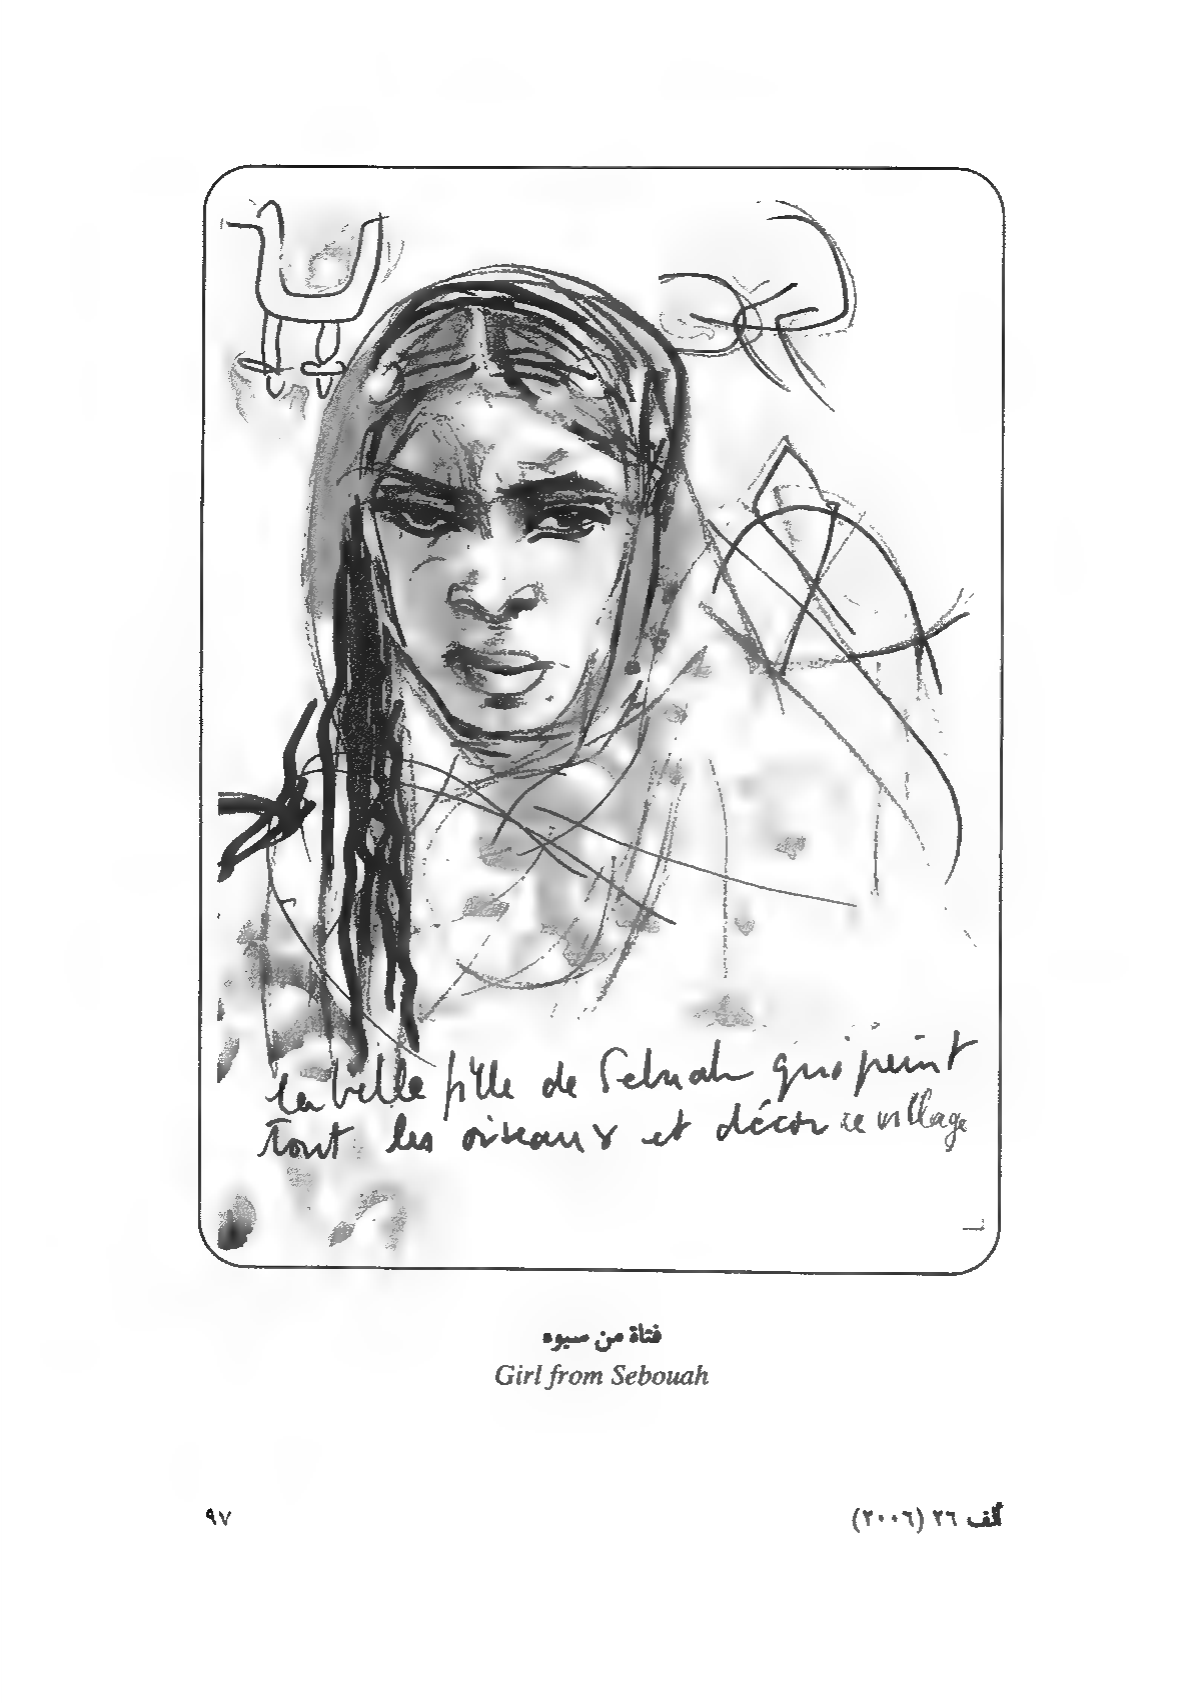 la belle fille de Sebuah qui peint
tout les oiseaux et décor ce village
فتاة من سبوه
Girl from Sebouah
٩٧
ألف ٢٦ (٢٠٠٦)